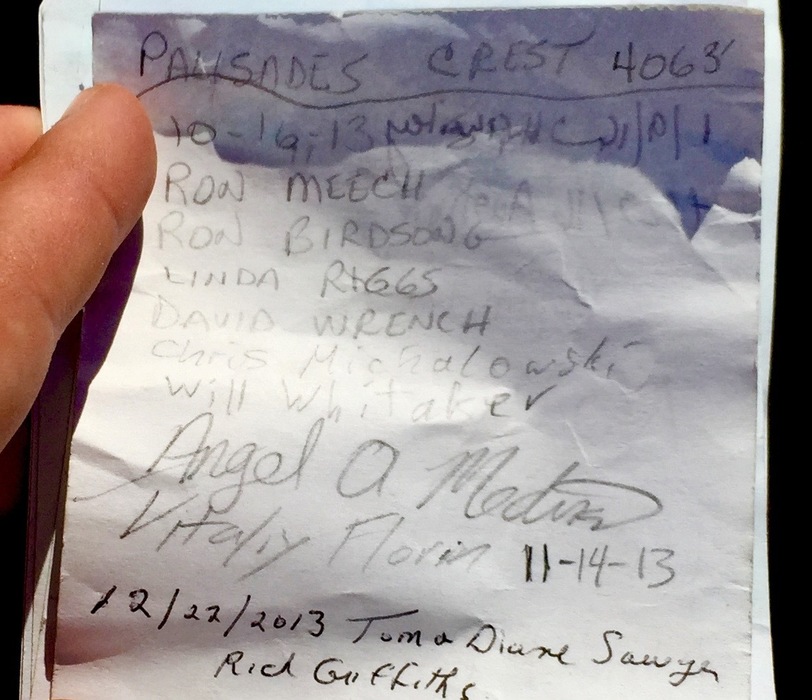 PALISADES CREST 4063'
10-16-13
RON MEECH
RON BIRDSONG
LINDA RIGGS
DAVID WRENCH
Chris Michalowski
Will Whitaker
Angel A Medina
Vitaliy Florin 11-14-13
12/22/2013 Tom & Diane Sawyer
Rich Griffiths